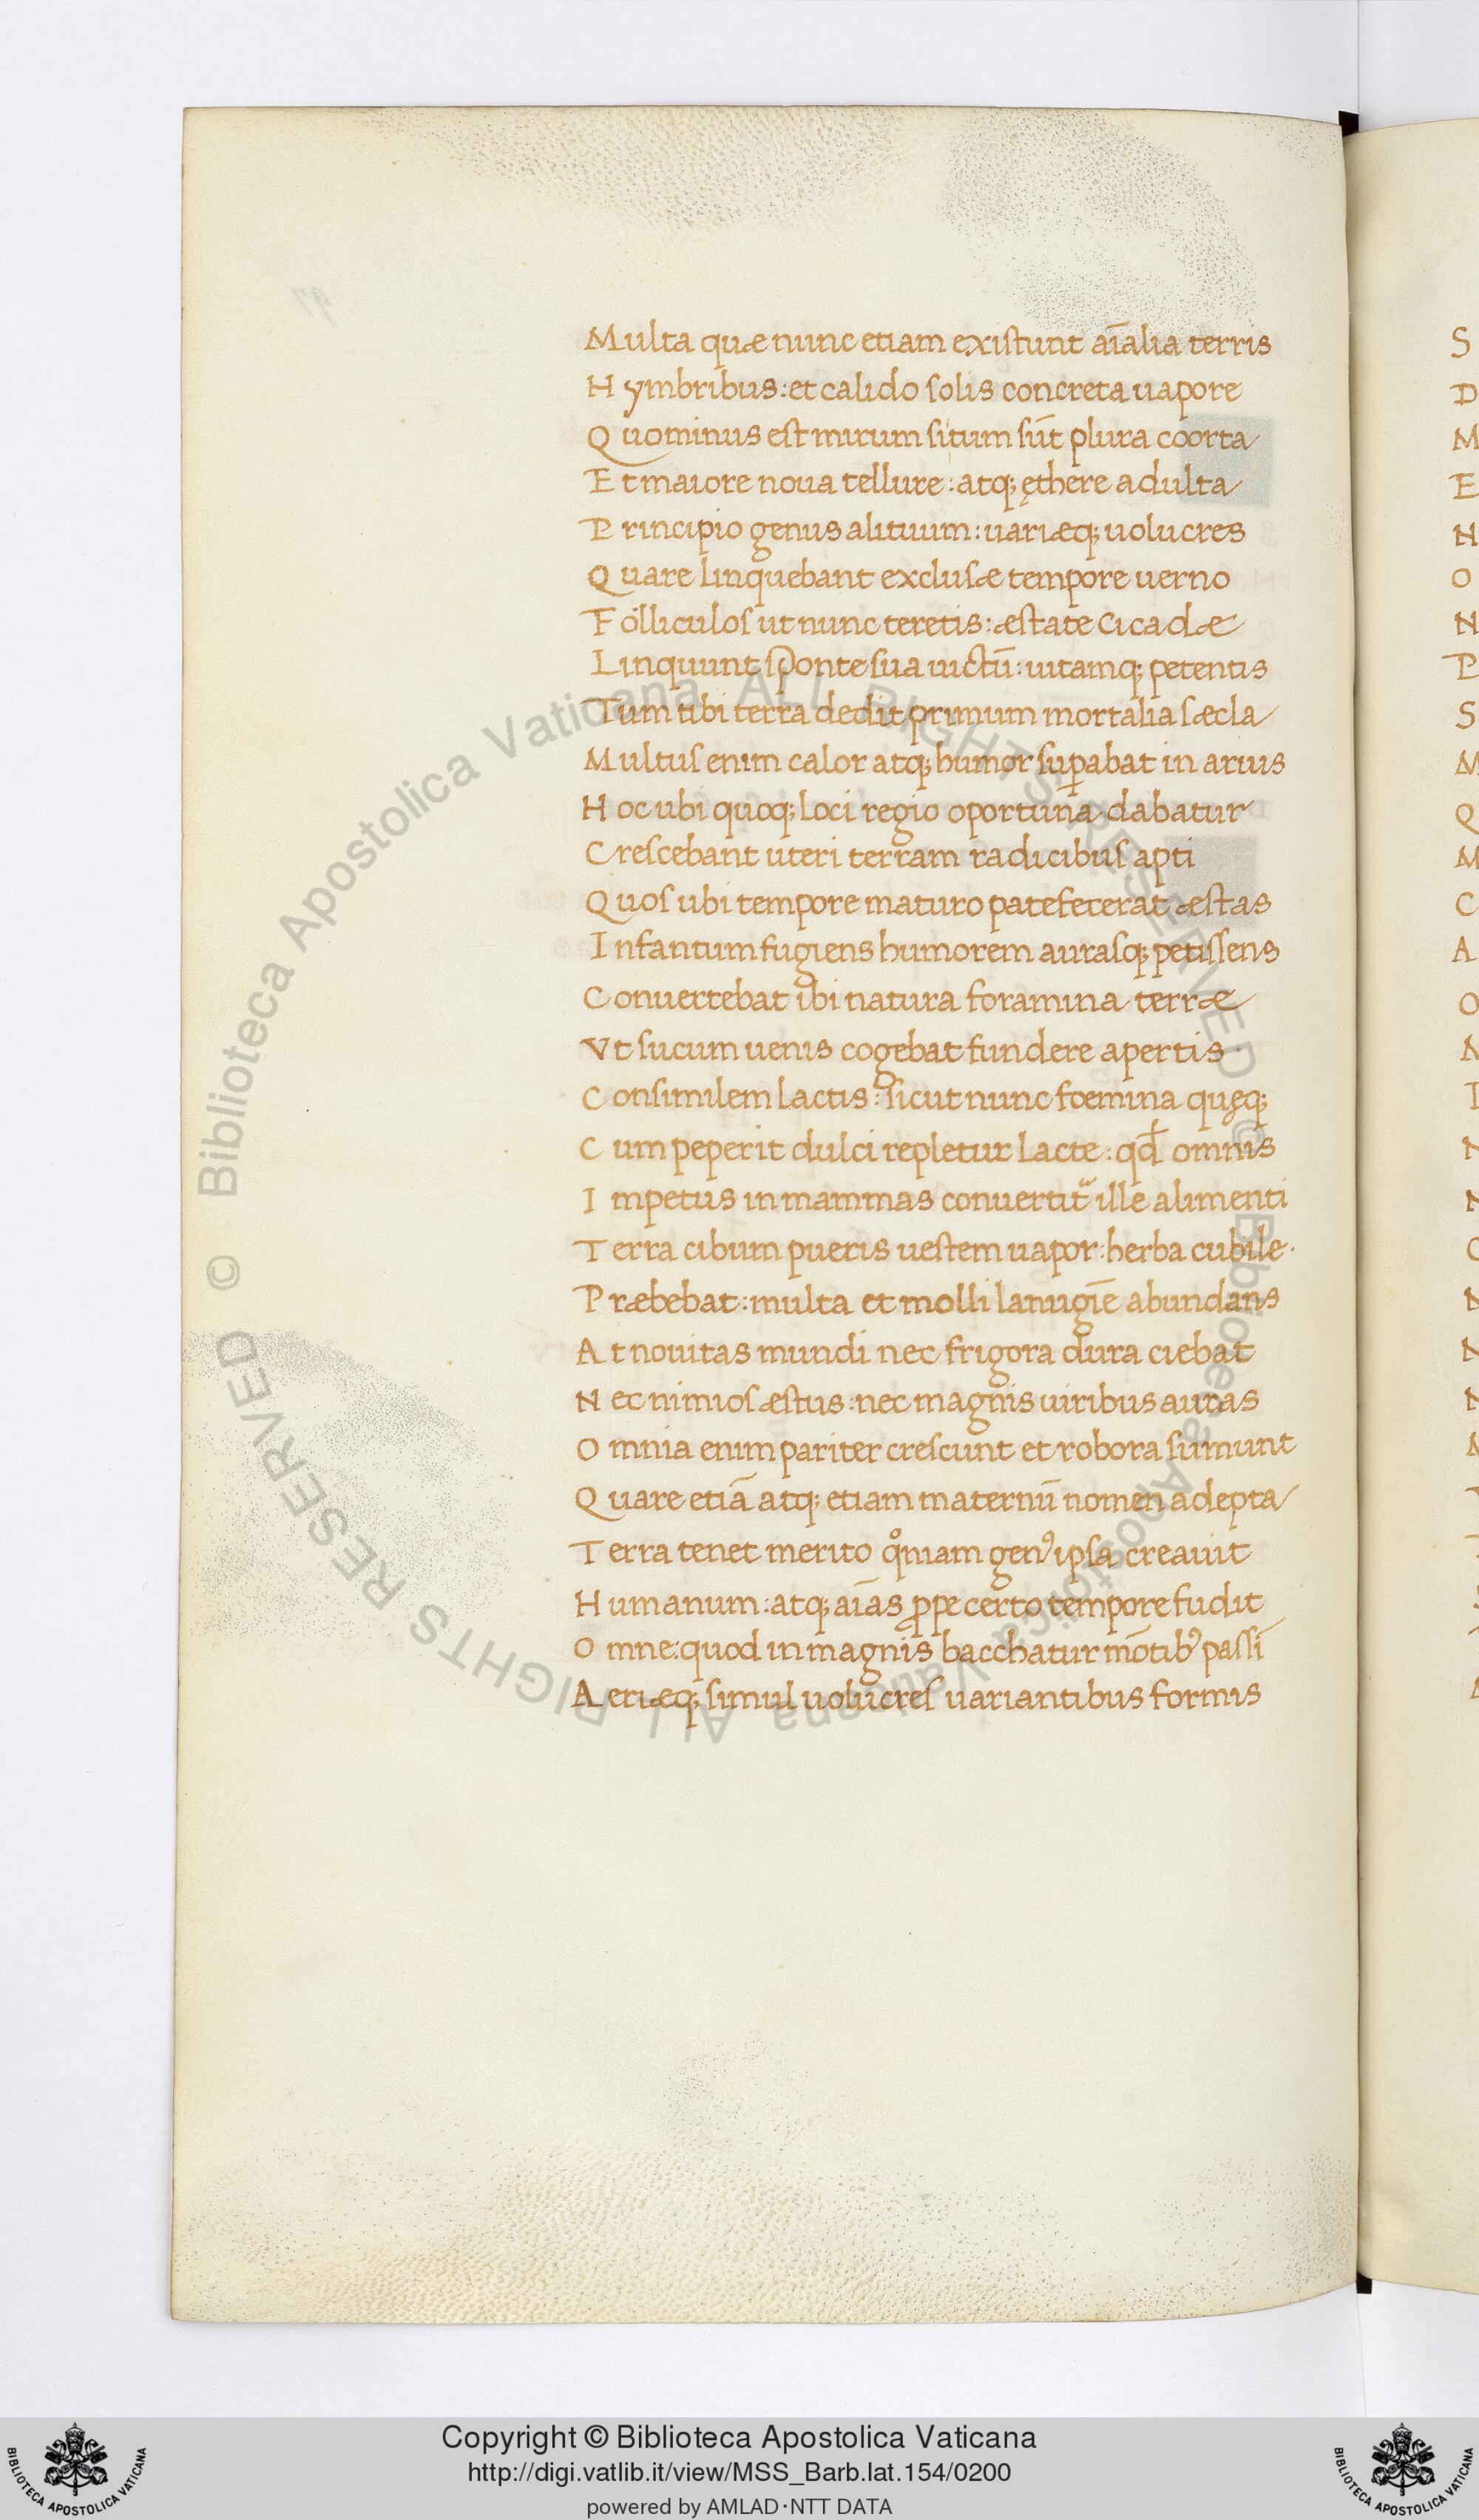 Multa quæ nunc etiam existunt aīalia terris
Hymbribus: et calido solis concreta uapore
Quominus est mirum situm sūt plura coorta
Et maiore noua tellure: atq; ęthere adulta
Principio genus alituum: uariæq; uolucres
Quare linquebant exclusæ tempore uerno
Folliculos ut nunc teretis: æstate cicadæ
Linquunt sponte sua uictū: uitamq; petentis
Tum tibi terra dedit primum mortalia sæcla
Multus enim calor atq; humor suꝑabat in aruis
Hoc ubi quoq; loci regio oportuna dabatur
Crescebant uteri terram radicibus apti
Quos ubi tempore maturo patefecerat æstas
Infantum fugiens humorem aurasq; petissens
Conuertebat ibi natura foramina terræ
Vt sucum uenis cogebat fundere apertis.
Consimilem lactis: sicut nunc foemina quęq;
Cum peperit dulci repletur lacte: qđ omnis
Impetus in mammas conuertit᷑ ille alimenti
Terra cibum pueris uestem uapor: herba cubile.
Præbebat: multa et molli lanugīe abundans
At nouitas mundi nec frigora dura ciebat
Nec nimios æstus: nec magnis uiribus auras
Omnia enim pariter crescunt et robora sumunt
Quare etiā atq; etiam maternū nomen adepta
Terra tenet merito qͦniam genꝰ ipsa creauit
Humanum: atq; aīas ꝓpe certo tempore fudit
Omne: quod in magnis bacchatur mōtibꝰ passī
Aeriæq; simul uolucres uariantibus formis
S
D
M
E
N
O
N
P
S
M
Q
M
C
A
O
© Biblioteca Apostolica Vaticana ALL RIGHTS RESERVED
© Biblioteca Apostolica Vaticana ALL RIGHTS RESERVED
Copyright © Biblioteca Apostolica Vaticana
http://digi.vatlib.it/view/MSS_Barb.lat.154/0200
powered by AMLAD·NTT DATA
BIBLIOTECA APOSTOLICA VATICANA
BIBLIOTECA APOSTOLICA VATICANA